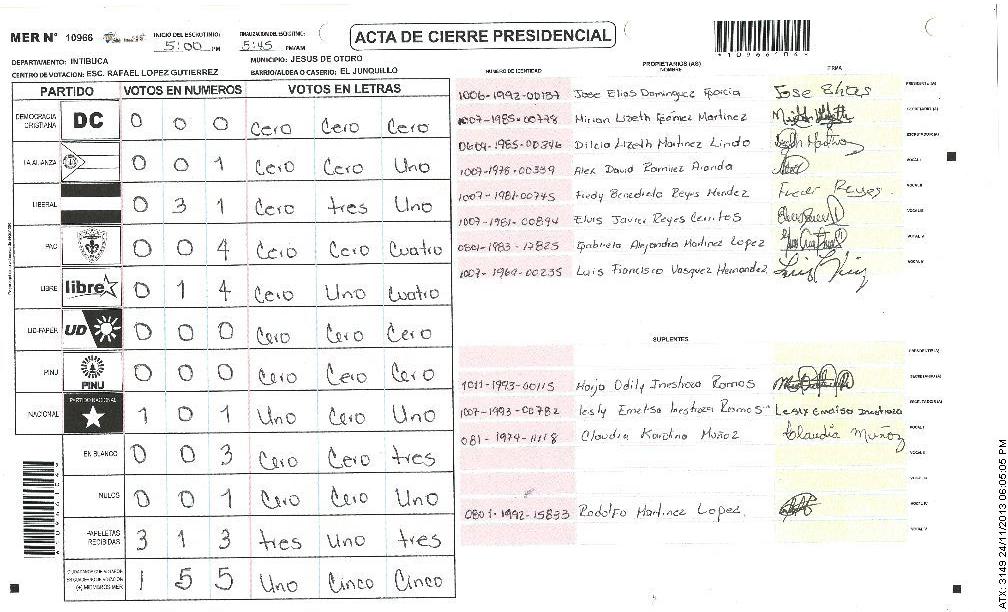 MER N° 10966
INICIO DEL ESCRUTINIO: 5:00 PM
FINALIZACION DEL ESCRUTINIO: 5:45 PM/AM
ACTA DE CIERRE PRESIDENCIAL
DEPARTAMENTO: INTIBUCA
MUNICIPIO: JESUS DE OTORO
CENTRO DE VOTACION: ESC. RAFAEL LOPEZ GUTIERREZ
BARRIO/ALDEA O CASERIO: EL JUNQUILLO
PARTIDO VOTOS EN NUMEROS VOTOS EN LETRAS
DEMOCRACIA CRISTIANA DC 0 0 0 Cero Cero Cero
LA ALIANZA 0 0 1 Cero Cero Uno
LIBERAL 0 3 1 Cero tres Uno
PAC 0 0 4 Cero Cero Cuatro
LIBRE libre 0 1 4 Cero Uno Cuatro
UD-FAPER UD 0 0 0 Cero Cero Cero
PINU PINU 0 0 0 Cero Cero Cero
NACIONAL PARTIDO NACIONAL 1 0 1 Uno Cero Uno
EN BLANCO 0 0 3 Cero Cero tres
NULOS 0 0 1 Cero Cero Uno
PAPELETAS RECIBIDAS 3 1 3 tres Uno tres
1 5 5 Uno Cinco Cinco
NUMERO DE IDENTIDAD PROPIETARIOS (AS) NOMBRE FIRMA
1006-1992-00137 Jose Elias Dominguez Garcia Jose Elias PRESIDENTE (A)
1007-1985-00778 Mirian Lizeth Gómez Martinez SECRETARIO (A)
0604-1985-00346 Dilcia Lizeth Martinez Lindo ESCRUTADOR (A)
1007-1975-00339 Alex David Ramirez Aranda VOCAL I
1007-1981-00745 Fredy Benedicto Reyes Mendez Reyes VOCAL II
1007-1981-00894 Elvis Javier Reyes Cerritos VOCAL III
0801-1983-17825 Gabriela Alejandra Martinez Lopez VOCAL IV
1007-1964-00235 Luis Francisco Vasquez Hernandez VOCAL V
SUPLENTES
PRESIDENTE (A)
1011-1993-00115 Odily Inestroza Ramos SECRETARIO (A)
1007-1993-00782 lesly Inestroza Ramos ESCRUTADOR (A)
081-1974-11118 Claudia Karolina Muñoz Claudia Muñoz VOCAL I
VOCAL II
VOCAL III
0801-1992-15833 Rodolfo Martinez Lopez. VOCAL IV
VOCAL V
ATX: 3149 24/11/2013 06:05:05 PM